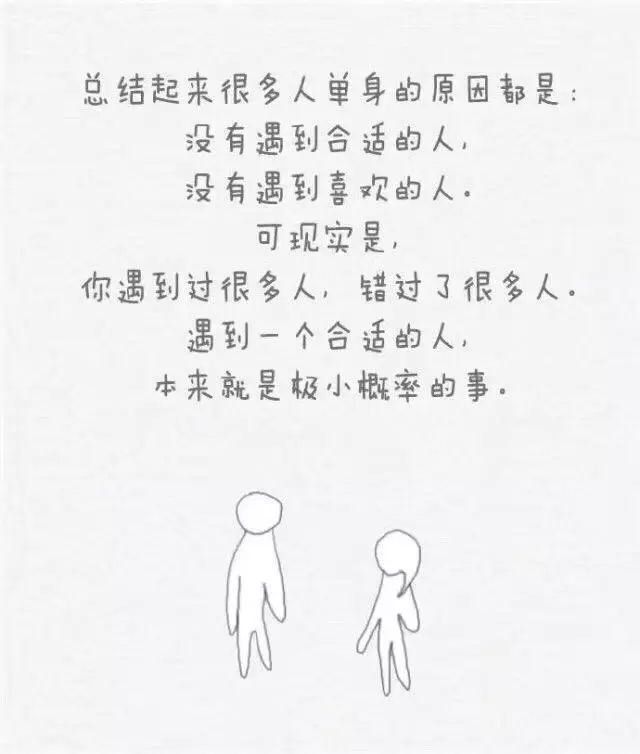 总结起来很多人单身的原因都是：
没有遇到合适的人，
没有遇到喜欢的人。
可现实是，
你遇到过很多人，错过了很多人。
遇到一个合适的人，
本来就是极小概率的事。